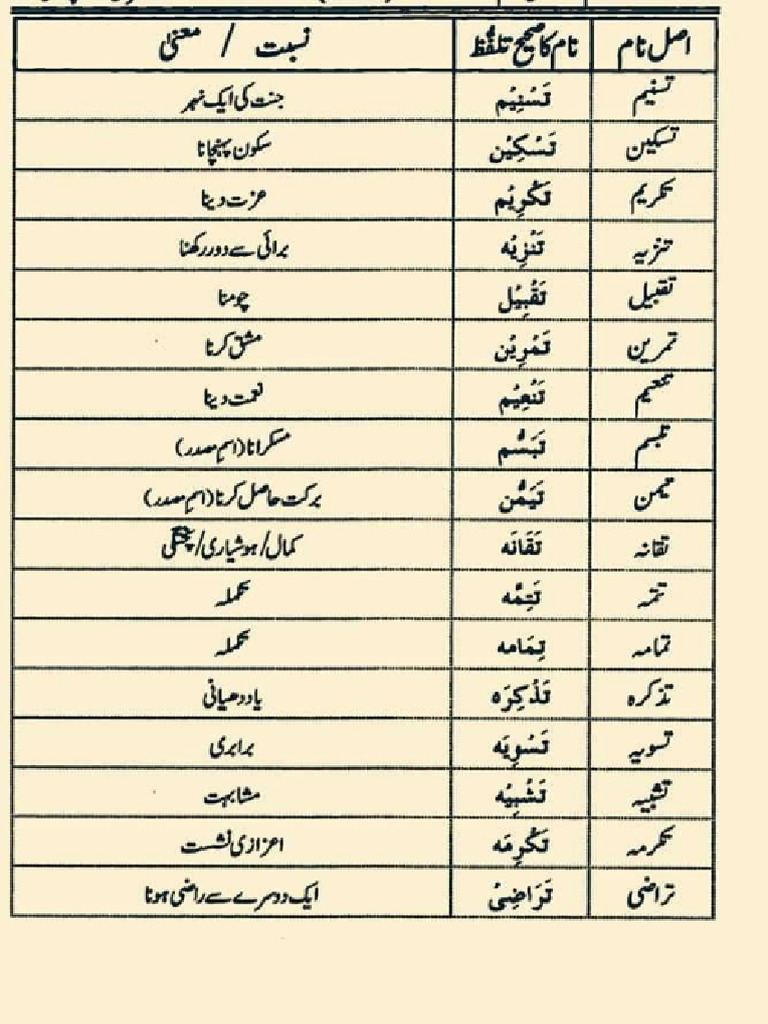 اصل نام نام کا صحیح تلفّظ نسبت / معنیٰ
تسنیم تَسْنِیْم جنت کی ایک نہر
تسکین تَسْکِیْن سکون پہنچانا
تکریم تَکْرِیْم عزت دینا
تنزیہ تَنْزِیْه برائی سے دور رکھنا
تقبیل تَقْبِیْل چومنا
تمرین تَمْرِیْن مشق کرنا
تنعیم تَنْعِیْم نعمت دینا
تبسم تَبَسُّم مسکرانا (اسمِ مصدر)
تیمن تَیَمُّن برکت حاصل کرنا (اسمِ مصدر)
تقانہ تَقَانَه کمال/ہوشیاری/پختگی
تتمہ تَتِمَّه تکملہ
تمامہ تِمَامه تکملہ
تذکرہ تَذْکِرَه یاددھیانی
تسویہ تَسْوِیَه برابری
تشبیہ تَشْبِیْه مشابہت
تکرمہ تَکْرِمَه اعزازی نشست
تراضی تَرَاضِیْ ایک دوسرے سے راضی ہونا